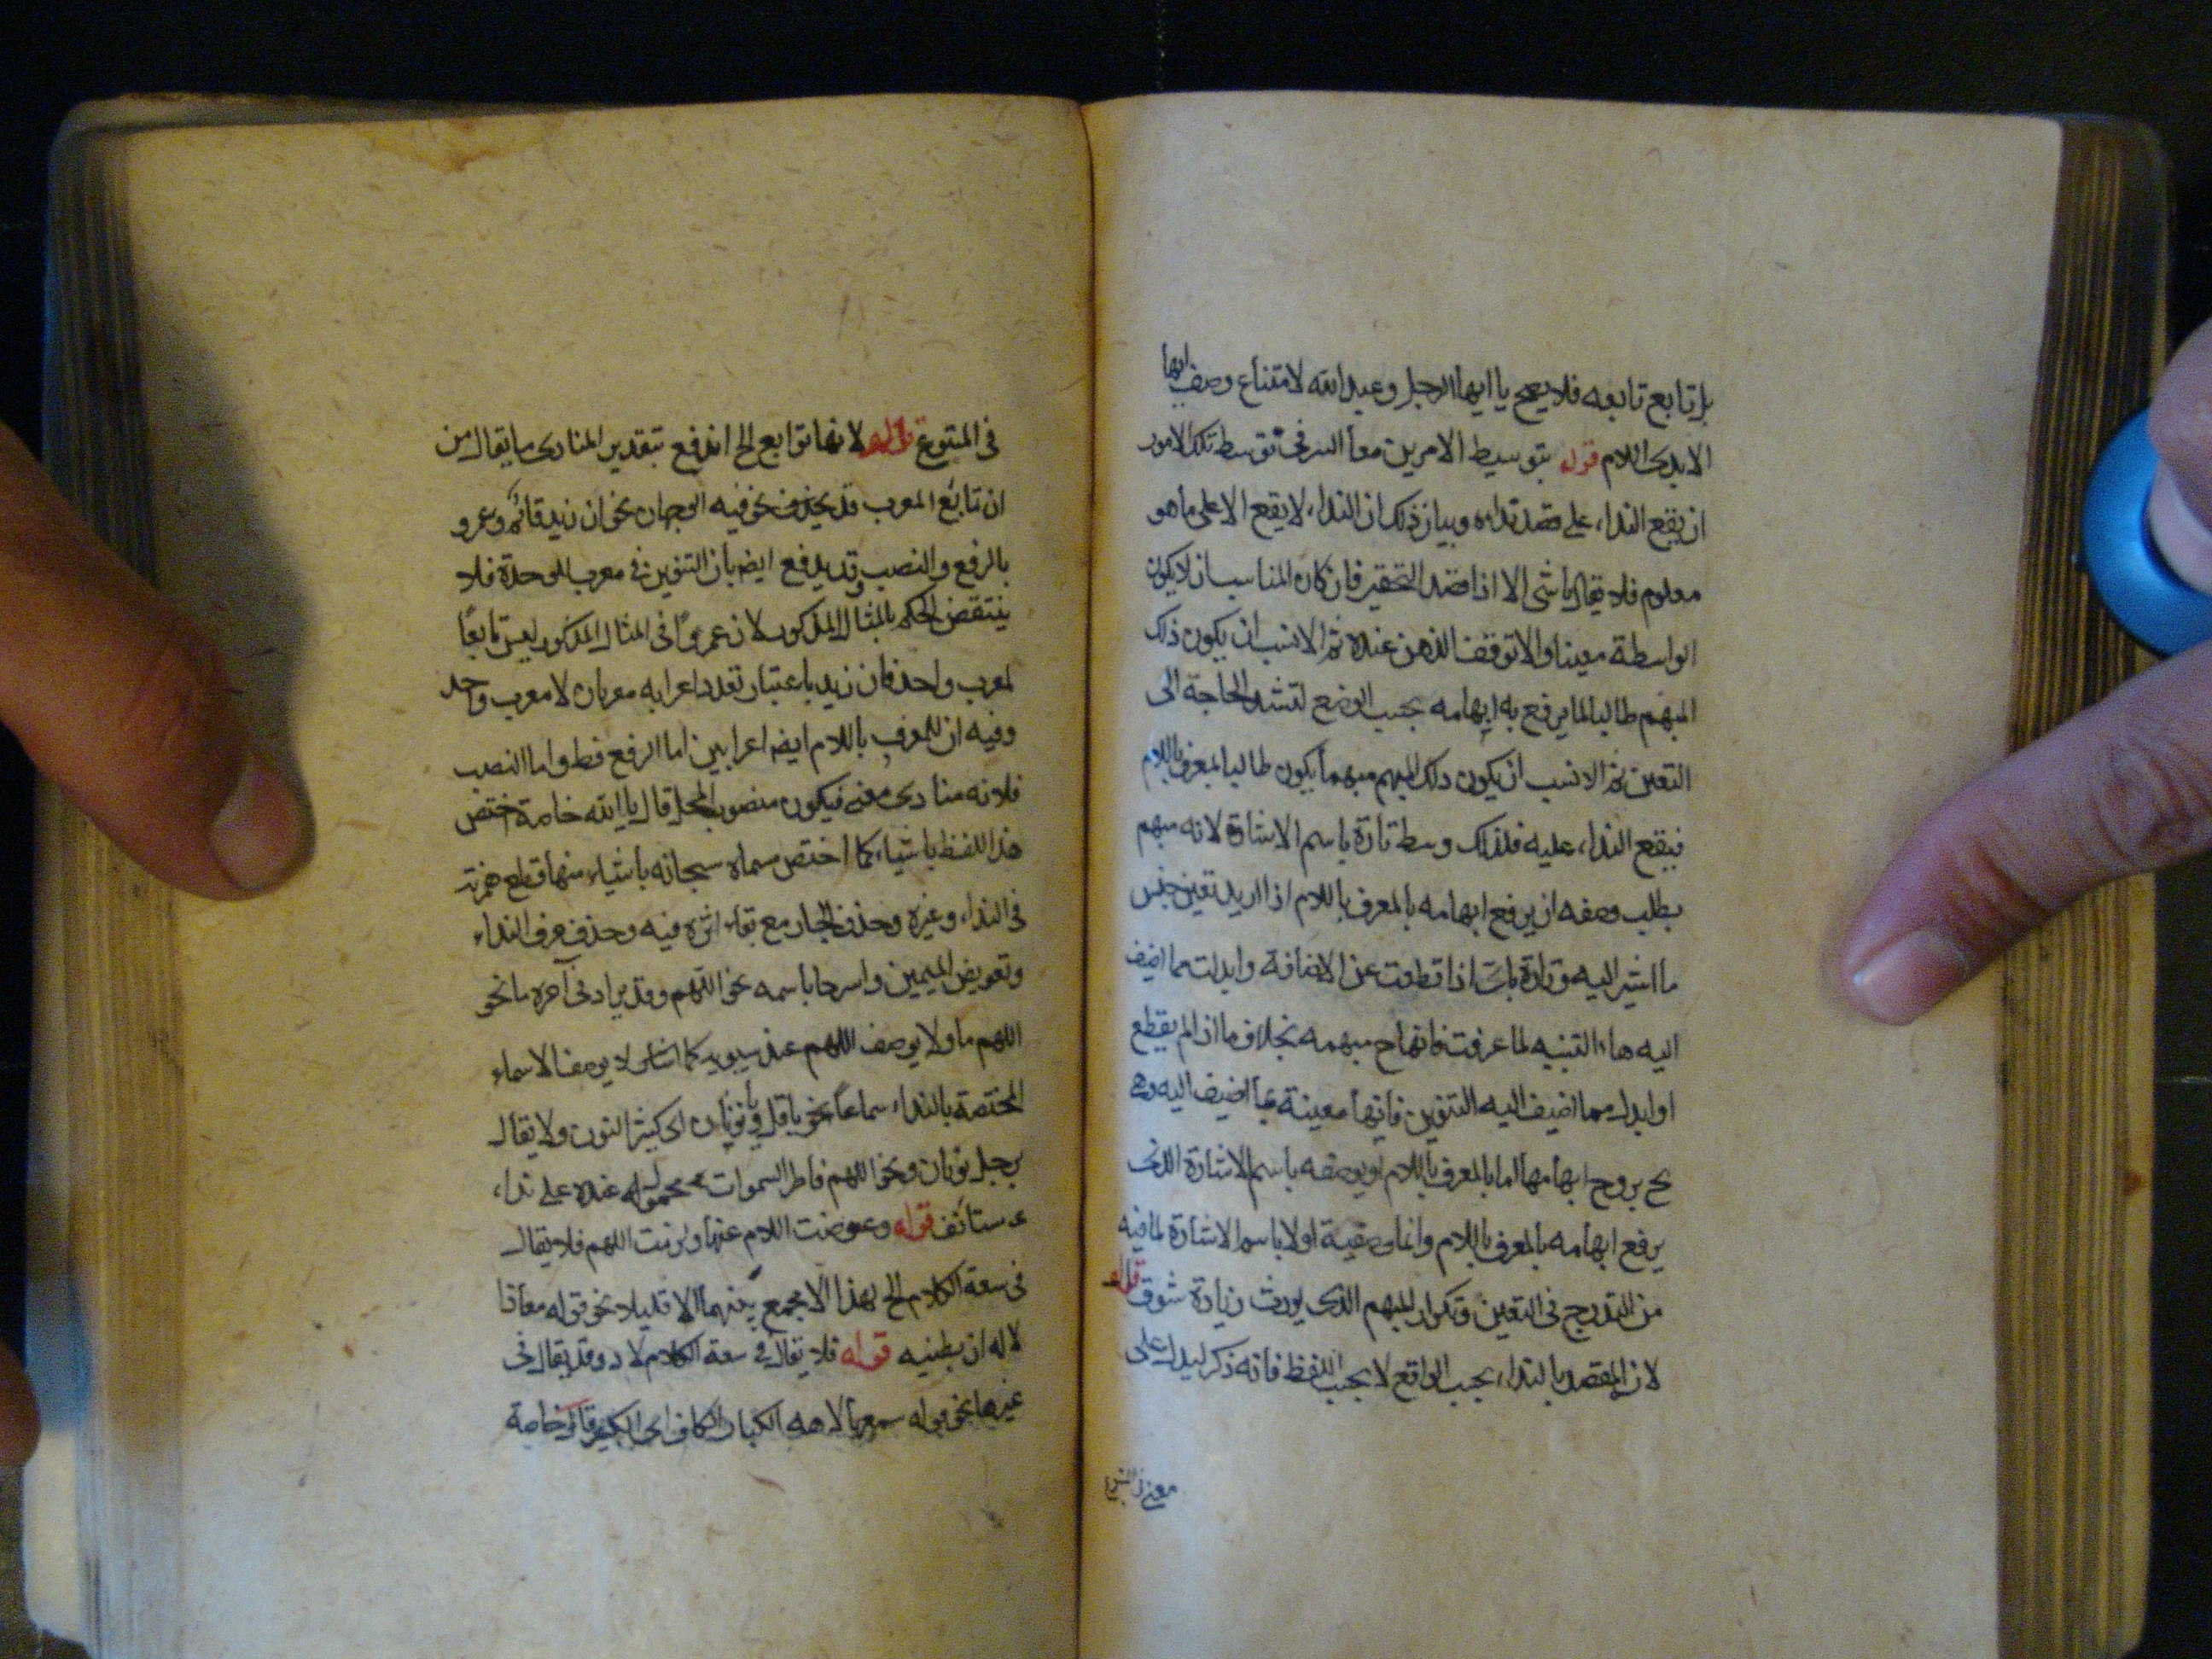 بل تابع تابعه فلا يصح يا ايها الرجل وعبد الله لامتناع وصف ايها
الا بذى اللام قوله بتوسيط الامرين معا السر فى توسط تلك الامور
ان يقع النداء على قصد نداءه وبيان ذلك ان النداء لا يقع الا على ما هو
معلوم فلا يقال يا شى الا اذا قصد التحقير فان كان المناسب ان لا يكون
الواسطة معينا والا توقف الذهن عنده ثم الانسب ان يكون ذلك
المبهم طالبا لما يرفع به ابهامه بحسب الوضع لتشتد الحاجة الى
التعين ثم الانسب ان يكون ذلك المبهم مبهما يكون طالبا لمعرف باللام
فيقع النداء عليه فلذلك وسط تارة باسم الاشارة لانه مبهم
يطلب وصفه ان يرفع ابهامه بالمعرف باللام اذا اريد تعين جنس
ما اشير اليه وتارة باى اذا قطعت عن الاضافة وابدلت مما اضيف
اليه هاء التنبيه لما عرفت فانها ح مبهمه بخلاف ما اذا لم يقطع
او ابدل مما اضيف اليه التنوين فانها معينة بما اضيف اليه وهى
ح يروح ابهامها اما بالمعرف باللام او بوصفه باسم الاشارة الذى
يرفع ابهامه بالمعرف باللام وانما وصفية اولا باسم الاشارة لما فيه
من التدرج فى التعين وتكرار المبهم الذى يورث زيادة شوق قوله
لان المقصد بالنداء بحسب الواقع لا بحسب اللفظ فانه ذكر ليدل على
معنى فى المتبوع
فى المتبوع قوله لانها توابع الخ اندفع بتقدير المنادى ما يقال من
ان تابع المعرب قد يجوز فيه الوجهان نحو ان زيد قائم وعمرو
بالرفع والنصب وقد يدفع ايضا بان التنوين فى معرب للوحدة فلا
ينتقض الحكم بالمثال المذكور لان عمروا فى المثال المذكور ليس تابعا
لمعرب واحد فان زيد باعتبار تعدد اعرابه معربان لا معرب واحد
وفيه ان للمعرف باللام ايضا اعرابين اما الرفع فظ واما النصب
فلانه منادى معنى فيكون منصوب المحل قال يا الله خاصة اختص
هذا اللفظ باشياء كما اختص مسماه سبحانه باشياء منها قطع همزته
فى النداء وغيره وحذف الجار مع بقاء اثره فيه وحذف حرف النداء
وتعويض الميمين باسمه نحو اللهم وقد يزاد فى آخره ما نحو
اللهم ما ولا يوصف اللهم عند سيبويه كما لا يوصف الاسماء
المختصة بالنداء سماعا نحو يا فل ويا نومان اى كثير النون ولا يقال
رجل نومان ونحو اللهم فاطر السموات محمول عنده على نداء
مستأنف قوله وعوضت اللام عنها ولزمت اللهم فلا يقال
فى سعة الكلام الخ لهذا لا يجمع بينهما الا قليلا نحو قوله معاذ
الاله ان قوله فلا يقال فى سعة الكلام لاه وقد يقال فى
غيرها نحو قوله يسمعها لاهه الكبار قال خاصة